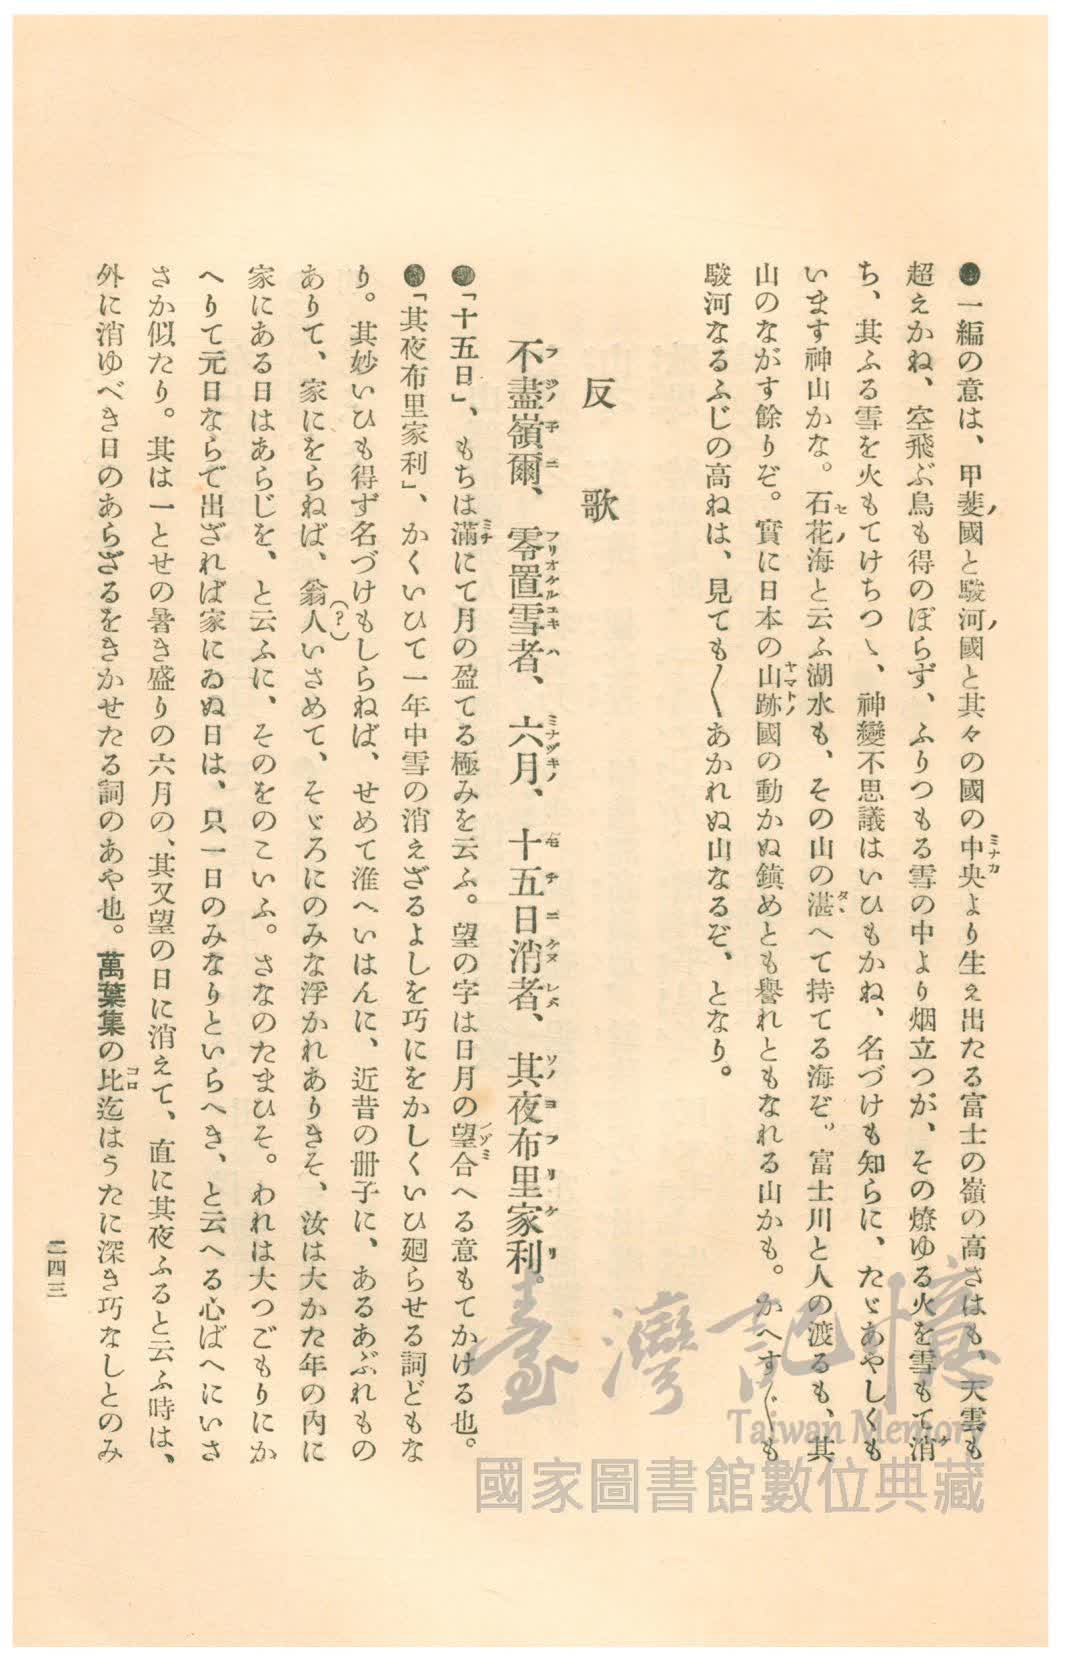 ●一編の意は、甲斐國と駿河國と其々の國の中央より生え出たる富士の嶺の高さはも、天雲も
超えかね、空飛ぶ鳥も得のぼらず、ふりつもる雪の中より烟立つが、その燎ゆる火を雪もて消
ち、其ふる雪を火もてけちつゝ、神變不思議はいひもかね、名づけも知らに、たゞあやしくも
います神山かな。石花海と云ふ湖水も、その山の湛へて持てる海ぞ。富士川と人の渡るも、其
山のながす餘りぞ。實に日本の山跡國の動かぬ鎭めとも譽れともなれる山かも。かへす〴〵も
駿河なるふじの高ねは、見ても〳〵あかれぬ山なるぞ、となり。
反歌
不盡嶺爾、零置雪者、六月、十五日消者、其夜布里家利。
●「十五日」、もちは滿にて月の盈てる極みを云ふ。望の字は日月の望合へる意もてかける也。
●「其夜布里家利」、かくいひて一年中雪の消えざるよしを巧にをかしくいひ廻らせる詞どもな
り。其妙いひも得ず名づけもしらねば、せめて淮へいはんに、近昔の册子に、あるあぶれもの
ありて、家にをらねば、翁人(?)いさめて、そゞろにのみな浮かれありきそ、汝は大かた年の内に
家にある日はあらじを、と云ふに、そのをのこいふ。さなのたまひそ。われは大つごもりにか
へりて元日ならで出ざれば家にゐぬ日は、只一日のみなりといらへき、と云へる心ばへにいさ
さか似たり。其は一とせの暑き盛りの六月の、其又望の日に消えて、直に其夜ふると云ふ時は、
外に消ゆべき日のあらざるをきかせたる詞のあや也。萬葉集の比迄はうたに深き巧なしとのみ
二四三
臺灣記憶
Taiwan Memory
國家圖書館數位典藏